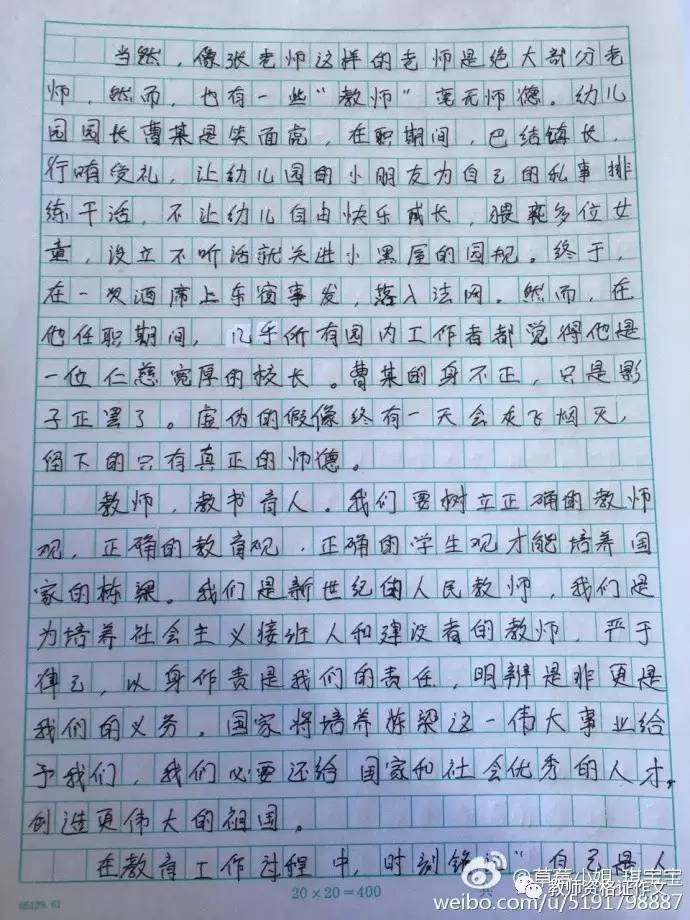 当然，像张老师这样的老师是绝大部分老
师，然而，也有一些“教师”毫无师德。幼儿
园园长曹某是笑面虎，在职期间，巴结镇长，
行贿受礼，让幼儿园的小朋友为自己的私事排
练干活，不让幼儿自由快乐成长，猥亵多位女
童，设立不听话就关进小黑屋的园规。终于，
在一次酒席上东窗事发，落入法网。然而，在
他任职期间，几乎所有园内工作者都觉得他是
一位仁慈宽厚的校长。曹某的身不正，只是影
子正罢了。虚伪的假像终有一天会灰飞烟灭，
留下的只有真正的师德。
教师，教书育人。我们要树立正确的教师
观，正确的教育观，正确的学生观才能培养国
家的栋梁。我们是新世纪的人民教师，我们是
为培养社会主义接班人和建设者的教师，严于
律己，以身作责是我们的责任，明辨是非更是
我们的义务。国家将培养栋梁这一伟大事业给
予我们，我们必要还给国家和社会优秀的人才，
创造更伟大的祖国。
在教育工作过程中，时刻铭记“自己是人
05129.61
20×20=400
共
教师资格证作文
weibo.com/u/5191798887